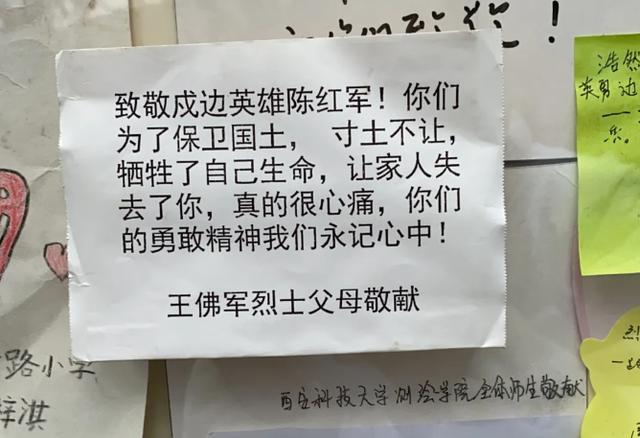 致敬戍边英雄陈红军！你们
为了保卫国土， 寸土不让，
牺牲了自己生命，让家人失
去了你，真的很心痛，你们
的勇敢精神我们永记心中！
王佛军烈士父母敬献
浩然
英勇边
一
乐。
烈
一
路小学
梓淇
西安科技大学测绘学院全体师生敬献